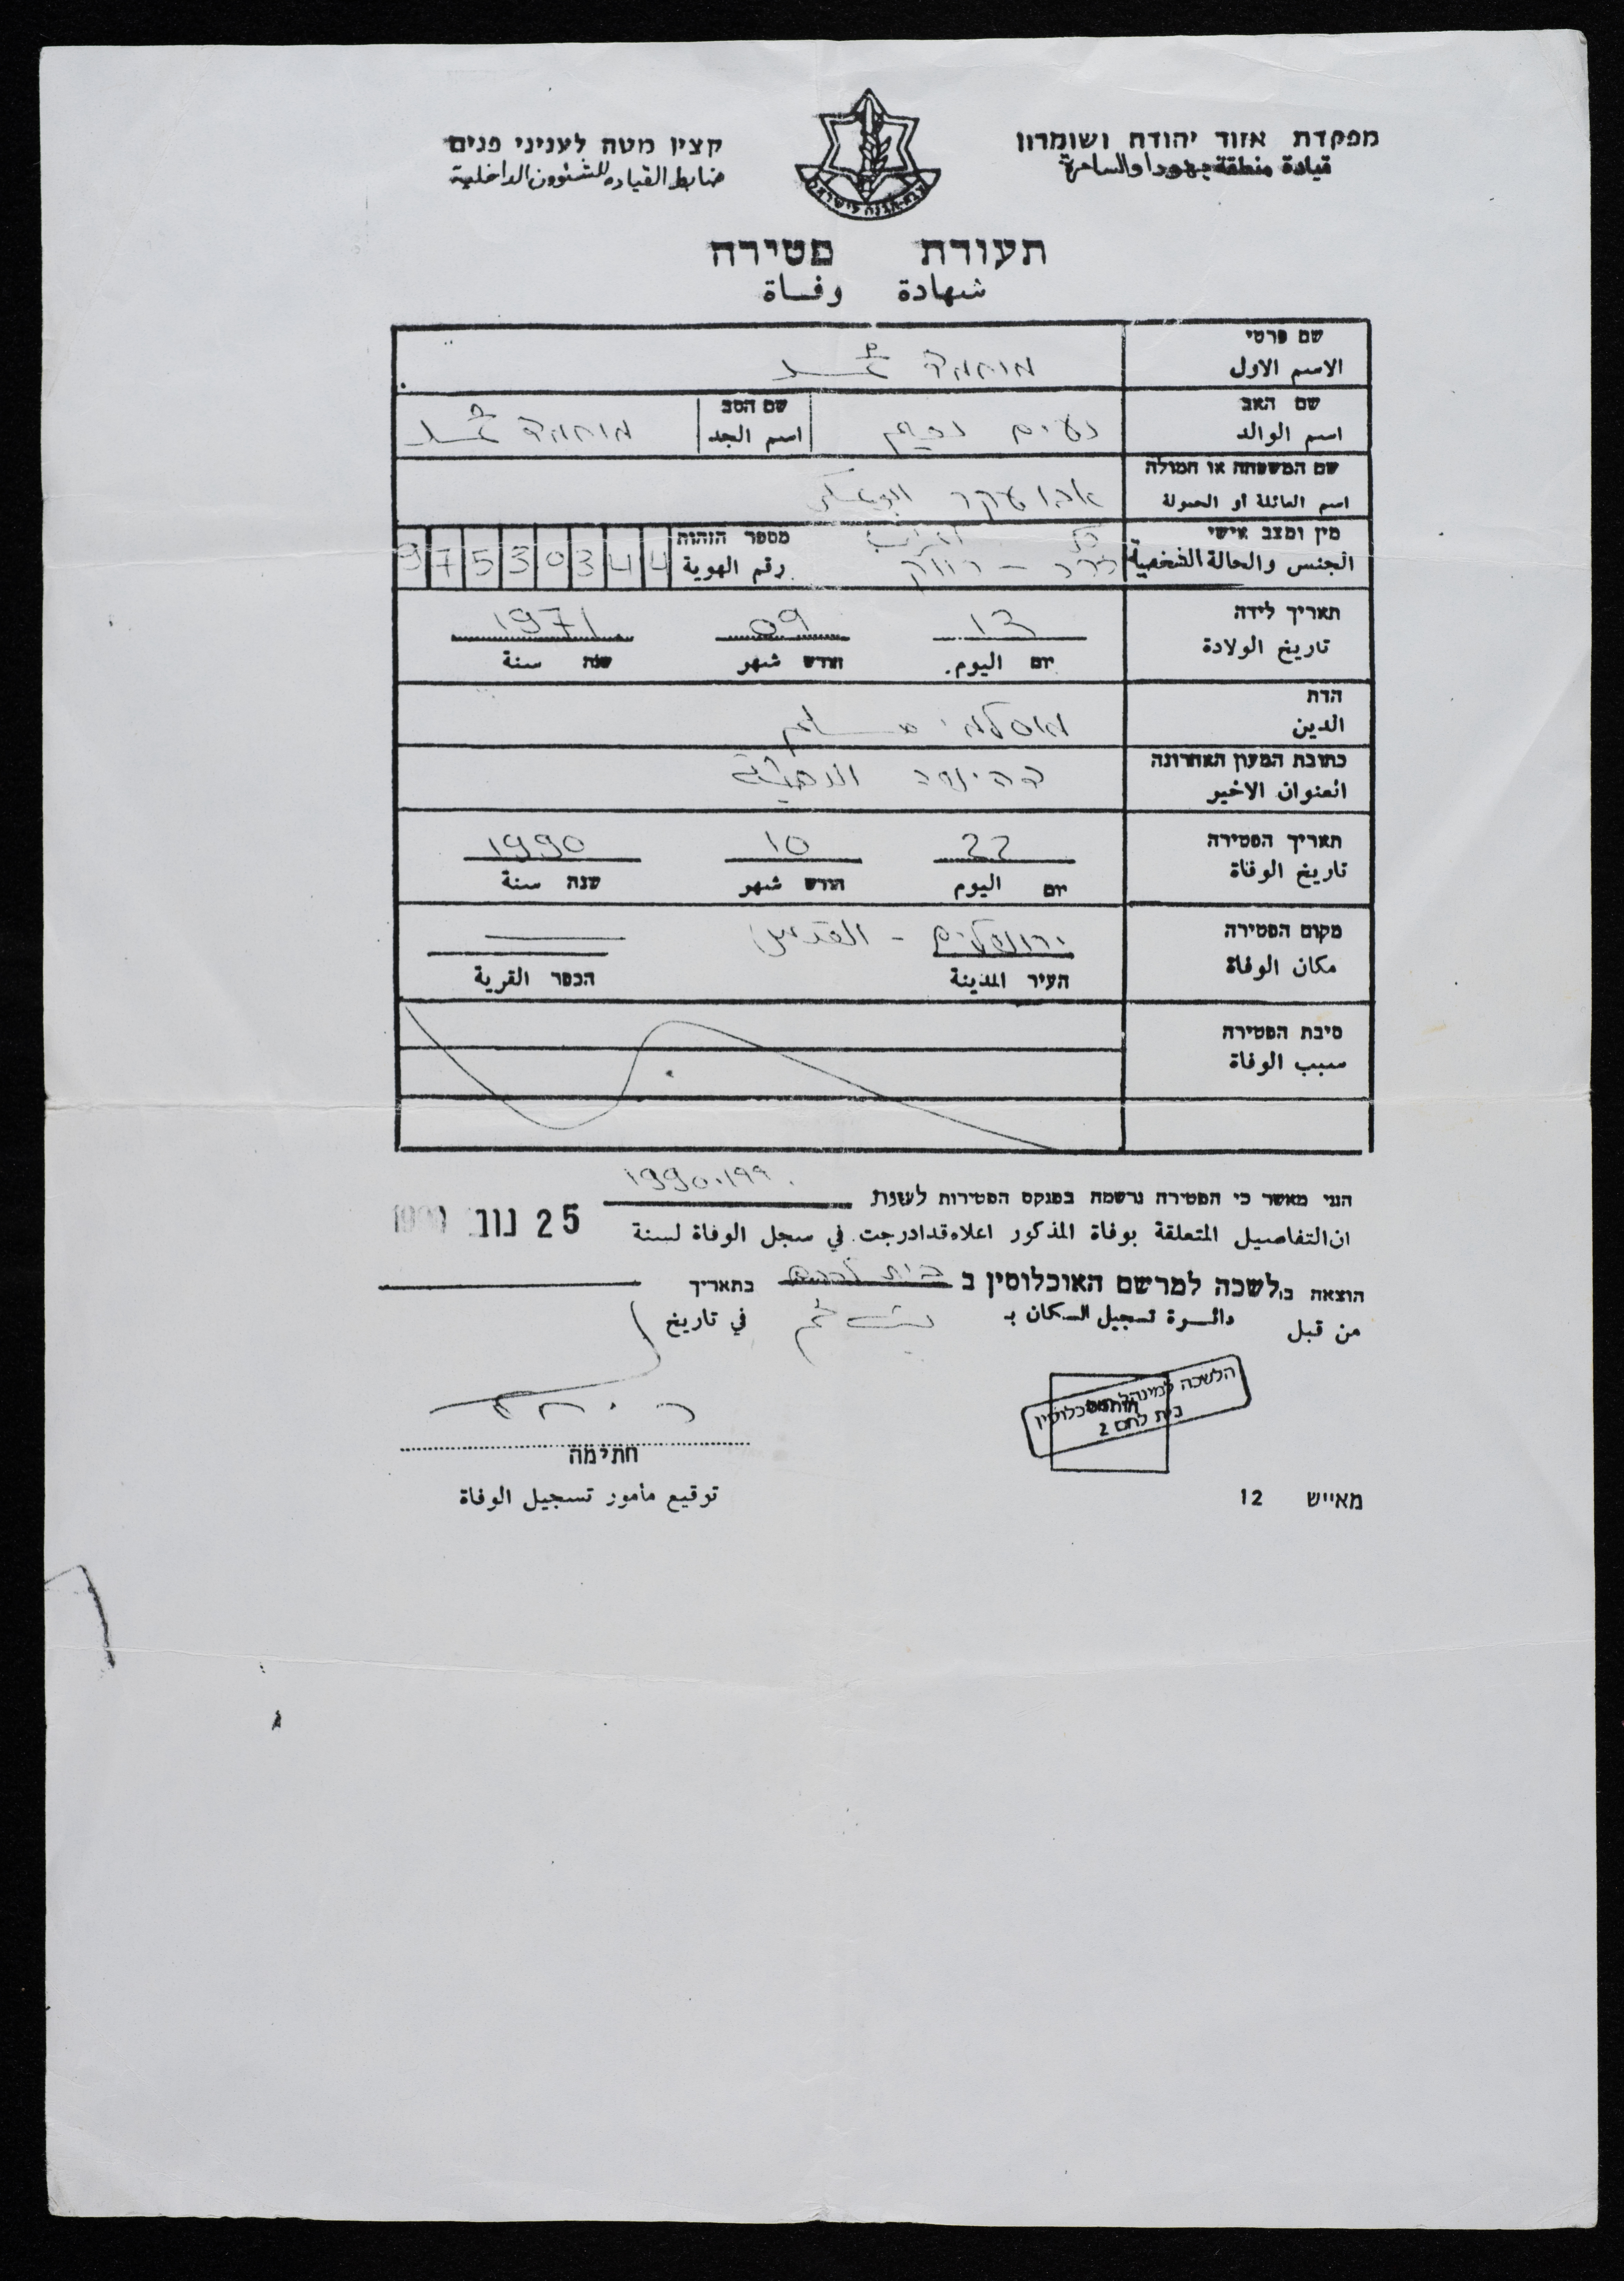 מפקדת אזור יהודה ושומרון
قيادة منطقة يهودا والسامرة
קצין מטה לעניני פנים
ضابط القيادة للشئوون الداخلية
צבא הגנה לישראל
תעודת פטירה
شهادة وفاة
שם פרטי
الاسم الاول
מוחמד محمد
שם האב
اسم الوالد
נעים نعيم
שם הסב
اسم الجد
מוחמד محمد
שם המשפחה או חמולה
اسم العائلة او الحمولة
אבו עקר ابو عكر
מין ומצב אישי
الجنس والحالة الشخصية
ذكر اعزب
זכר - רווק
מספר הזהות
رقم الهوية
9 7 5 3 0 3 4 4
תאריך לידה
تاريخ الولادة
13 09 1971
יום اليوم. חודש شهر שנה سنة
הדת
الدين
מוסלמי مسلم
כתובת המעון האחרונה
العنوان الاخير
דהישה الدهيشة
תאריך הפטירה
تاريخ الوفاة
22 10 1990
יום اليوم חודש شهر שנה سنة
מקום הפטירה
مكان الوفاة
ירושלים - القدس
העיר المدينة הכפר القرية
סיבת הפטירה
سبب الوفاة
הנני מאשר כי הפטירה נרשמה בפנקס הפטירות לשנת 1990.١٩٩٠
ان التفاصيل المتعلقة بوفاة المذكور اعلاه قد ادرجت في سجل الوفاة لسنة
25 נוב
הוצאה ב. לשכה למרשם האוכלוסין ב בית לחם בתאריך
من قبل دائرة تسجيل السكان بـ بيت لحم في تاريخ
הלשכה למינהל אוכלוסין
בית לחם 2
חתימה
توقيع مأمور تسجيل الوفاة
מאייש 12